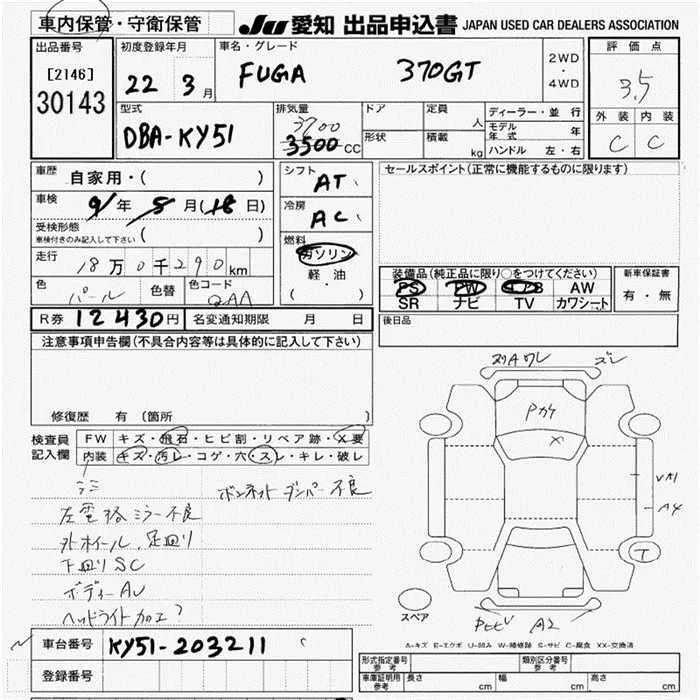 車内保管・守衛保管 JU 愛知 出品申込書 JAPAN USED CAR DEALERS ASSOCIATION
出品番号 初度登録年月 車名・グレード 評価点
[2146] 22 3月 FUGA 370GT 2WD・4WD 3.5
30143
型式 排気量 ドア 定員 人 ディーラー・並行 外装 内装
DBA-KY51 3700 形状 積載 kg モデル年式 年 C C
3500 CC ハンドル 左・右
車歴 自家用・( ) シフト AT セールスポイント(正常に機能するものに限ります)
車検 9/年 8月(18日) 冷房 AC
受検形態 ( )
車検付きのみ記入して下さい
燃料 ガソリン
走行 18万0千290km 軽油 装備品(純正品に限り○をつけてください) 新車保証書
( ・ ) PS PW AW 有・無
色 パール 色替 色コード QAA SR ナビ TV カワシート
R券 12430円 名変通知期限 月 日 後日品
注意事項申告欄(不具合内容等は具体的に記入して下さい)
修復歴 有(箇所 )
検査員 FW キズ・飛石・ヒビ割・リペア跡・X要
記入欄 内装 キズ・汚レ・コゲ・穴・スレ・キレ・破レ
ボンネットダンパー不良
左電格ミラー不良
外ホイール、足回り
下回りSC
ボディーAU
ヘッドライト加工?
ズレ
Pカケ
×
A4
T
スペア
A2
A-キズ E-エクボ U-凹み W-補修跡 S-サビ C-腐食 XX-交換済
車台番号 KY51-203211
登録番号
形式指定番号 参考 類別区分番号 参考
車庫証明用 参考 長さ cm 幅 cm 高さ cm